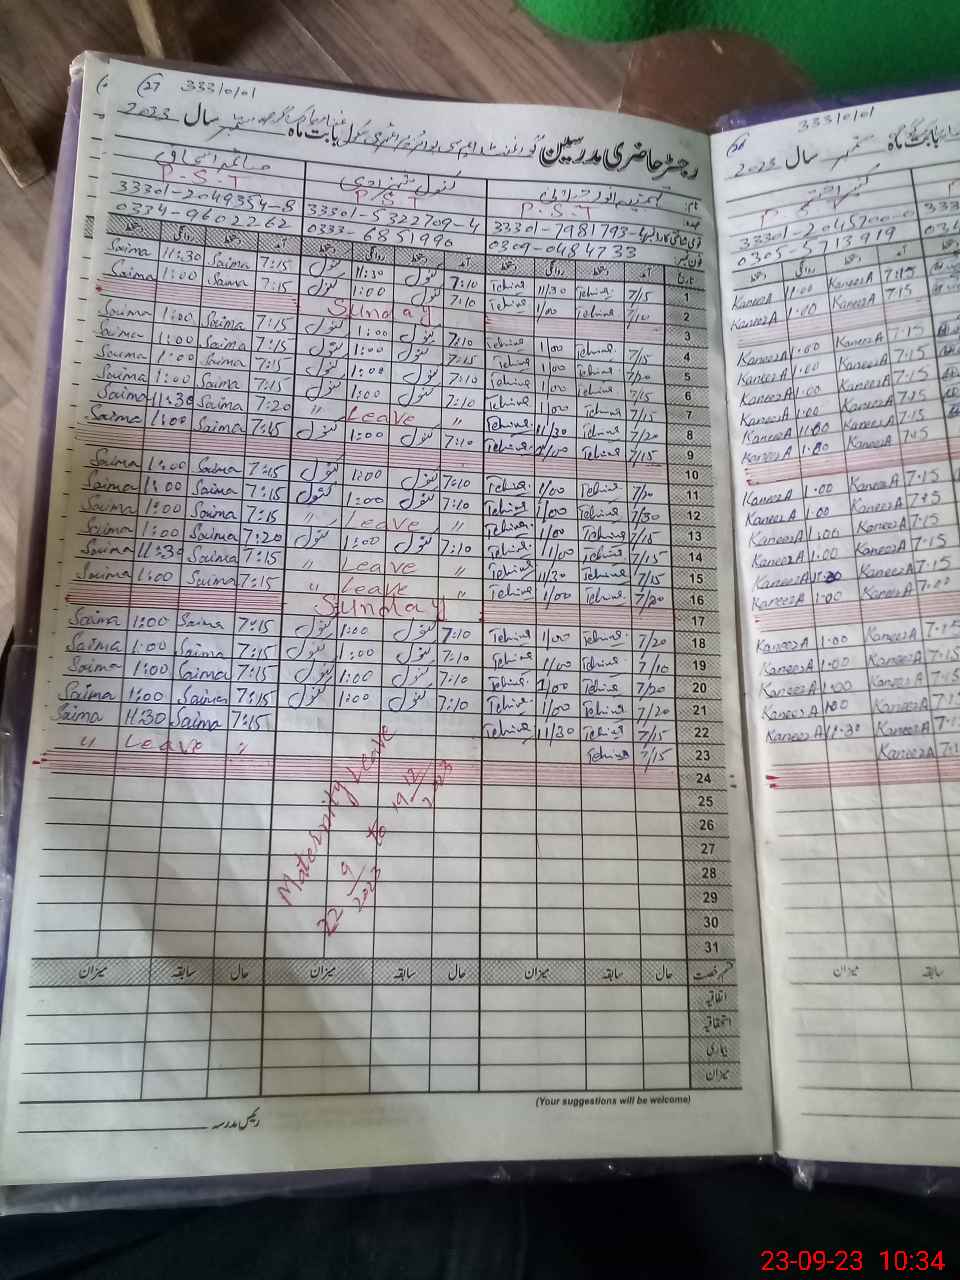 27 333/0/01
رجسٹر حاضری مدرسین بابت ماہ ستمبر سال 2023
صائمہ اسحاق کنول شہزادی نام
P.S.T P.S.T P.S.T عہدہ
33301-2049354-8 33301-5322709-4 33301-7981793-4
0334-9602262 0333-6851990 0309-0484733 فون نمبر
دستخط روانگی دستخط آمد دستخط روانگی دستخط آمد دستخط روانگی دستخط آمد تاریخ
Saima 11:30 Saima 7:15 کنول 11:30 کنول 7:10 Tehine 11/30 Tehine 7/15 1
Saima 1:00 Saima 7:15 کنول 1:00 کنول 7:10 Tehine 1/00 Tehine 7/10 2
Sunday 3
Saima 1:00 Saima 7:15 کنول 1:00 کنول 7:10 Tehine 1/00 Tehine 7/15 4
Saima 1:00 Saima 7:15 کنول 1:00 کنول 7:15 Tehine 1/00 Tehine 7/20 5
Saima 1:00 Saima 7:15 کنول 1:00 کنول 7:10 Tehine 1/00 Tehine 7/15 6
Saima 1:00 Saima 7:15 کنول 1:00 کنول 7:10 Tehine 1/00 Tehine 7/15 7
Saima 11:30 Saima 7:20 " Leave " Tehine 11/30 Tehine 7/20 8
Saima 1:00 Saima 7:15 کنول 1:00 کنول 7:10 Tehine 1/00 Tehine 7/15 9
10
Saima 1:00 Saima 7:15 کنول 1:00 کنول 7:10 Tehine 1/00 Tehine 7/20 11
Saima 1:00 Saima 7:15 کنول 1:00 کنول 7:10 Tehine 1/00 Tehine 7/30 12
Saima 1:00 Saima 7:15 " Leave " Tehine 1/00 Tehine 7/15 13
Saima 1:00 Saima 7:20 کنول 1:00 کنول 7:10 Tehine 1/00 Tehine 7/15 14
Saima 11:30 Saima 7:15 " Leave " Tehine 11/30 Tehine 7/15 15
Saima 1:00 Saima 7:15 " Leave " Tehine 1/00 Tehine 7/20 16
Sunday 17
Saima 1:00 Saima 7:15 کنول 1:00 کنول 7:10 Tehine 1/00 Tehine 7/20 18
Saima 1:00 Saima 7:15 کنول 1:00 کنول 7:10 Tehine 1/00 Tehine 7/10 19
Saima 1:00 Saima 7:15 کنول 1:00 کنول 7:10 Tehine 1/00 Tehine 7/20 20
Saima 1:00 Saima 7:15 کنول 1:00 کنول 7:10 Tehine 1/00 Tehine 7/20 21
Saima 11:30 Saima 7:15 Tehine 11/30 Tehine 7/15 22
" Leave " Tehine 7/15 23
24
25
26
27
28
29
30
31
Maternity Leave
22 9/2023 to 19 12/2023
میزان سابقہ حال میزان سابقہ حال میزان سابقہ حال قسم رخصت
اتفاقیہ
استحقاقیہ
بیماری
میزان
(Your suggestions will be welcome)
رئیس مدرسہ
333/0/01
بابت ماہ ستمبر سال 2023
33301-2045700-0
0305-5713919
KaneezA 11:00 KaneezA 7:15
KaneezA 1:00 KaneezA 7:15
KaneezA 1:00 KaneezA 7:15
KaneezA 1:00 KaneezA 7:15
KaneezA 1:00 KaneezA 7:15
KaneezA 1:00 KaneezA 7:15
KaneezA KaneezA 7:15
KaneezA 1:00 KaneezA 7:15
KaneezA 1:00 KaneezA 7:15
KaneezA 1:00 KaneezA 7:15
KaneezA 1:00 KaneezA 7:15
KaneezA 1:00 KaneezA 7:15
KaneezA KaneezA 7:15
KaneezA 1:00 KaneezA 7:00
KaneezA 1:00 KaneezA 7:15
KaneezA 1:00 KaneezA 7:15
KaneezA 1:00 KaneezA
KaneezA 1:00 KaneezA
KaneezA 11:30 KaneezA
KaneezA
میزان سابقہ
23-09-23 10:34